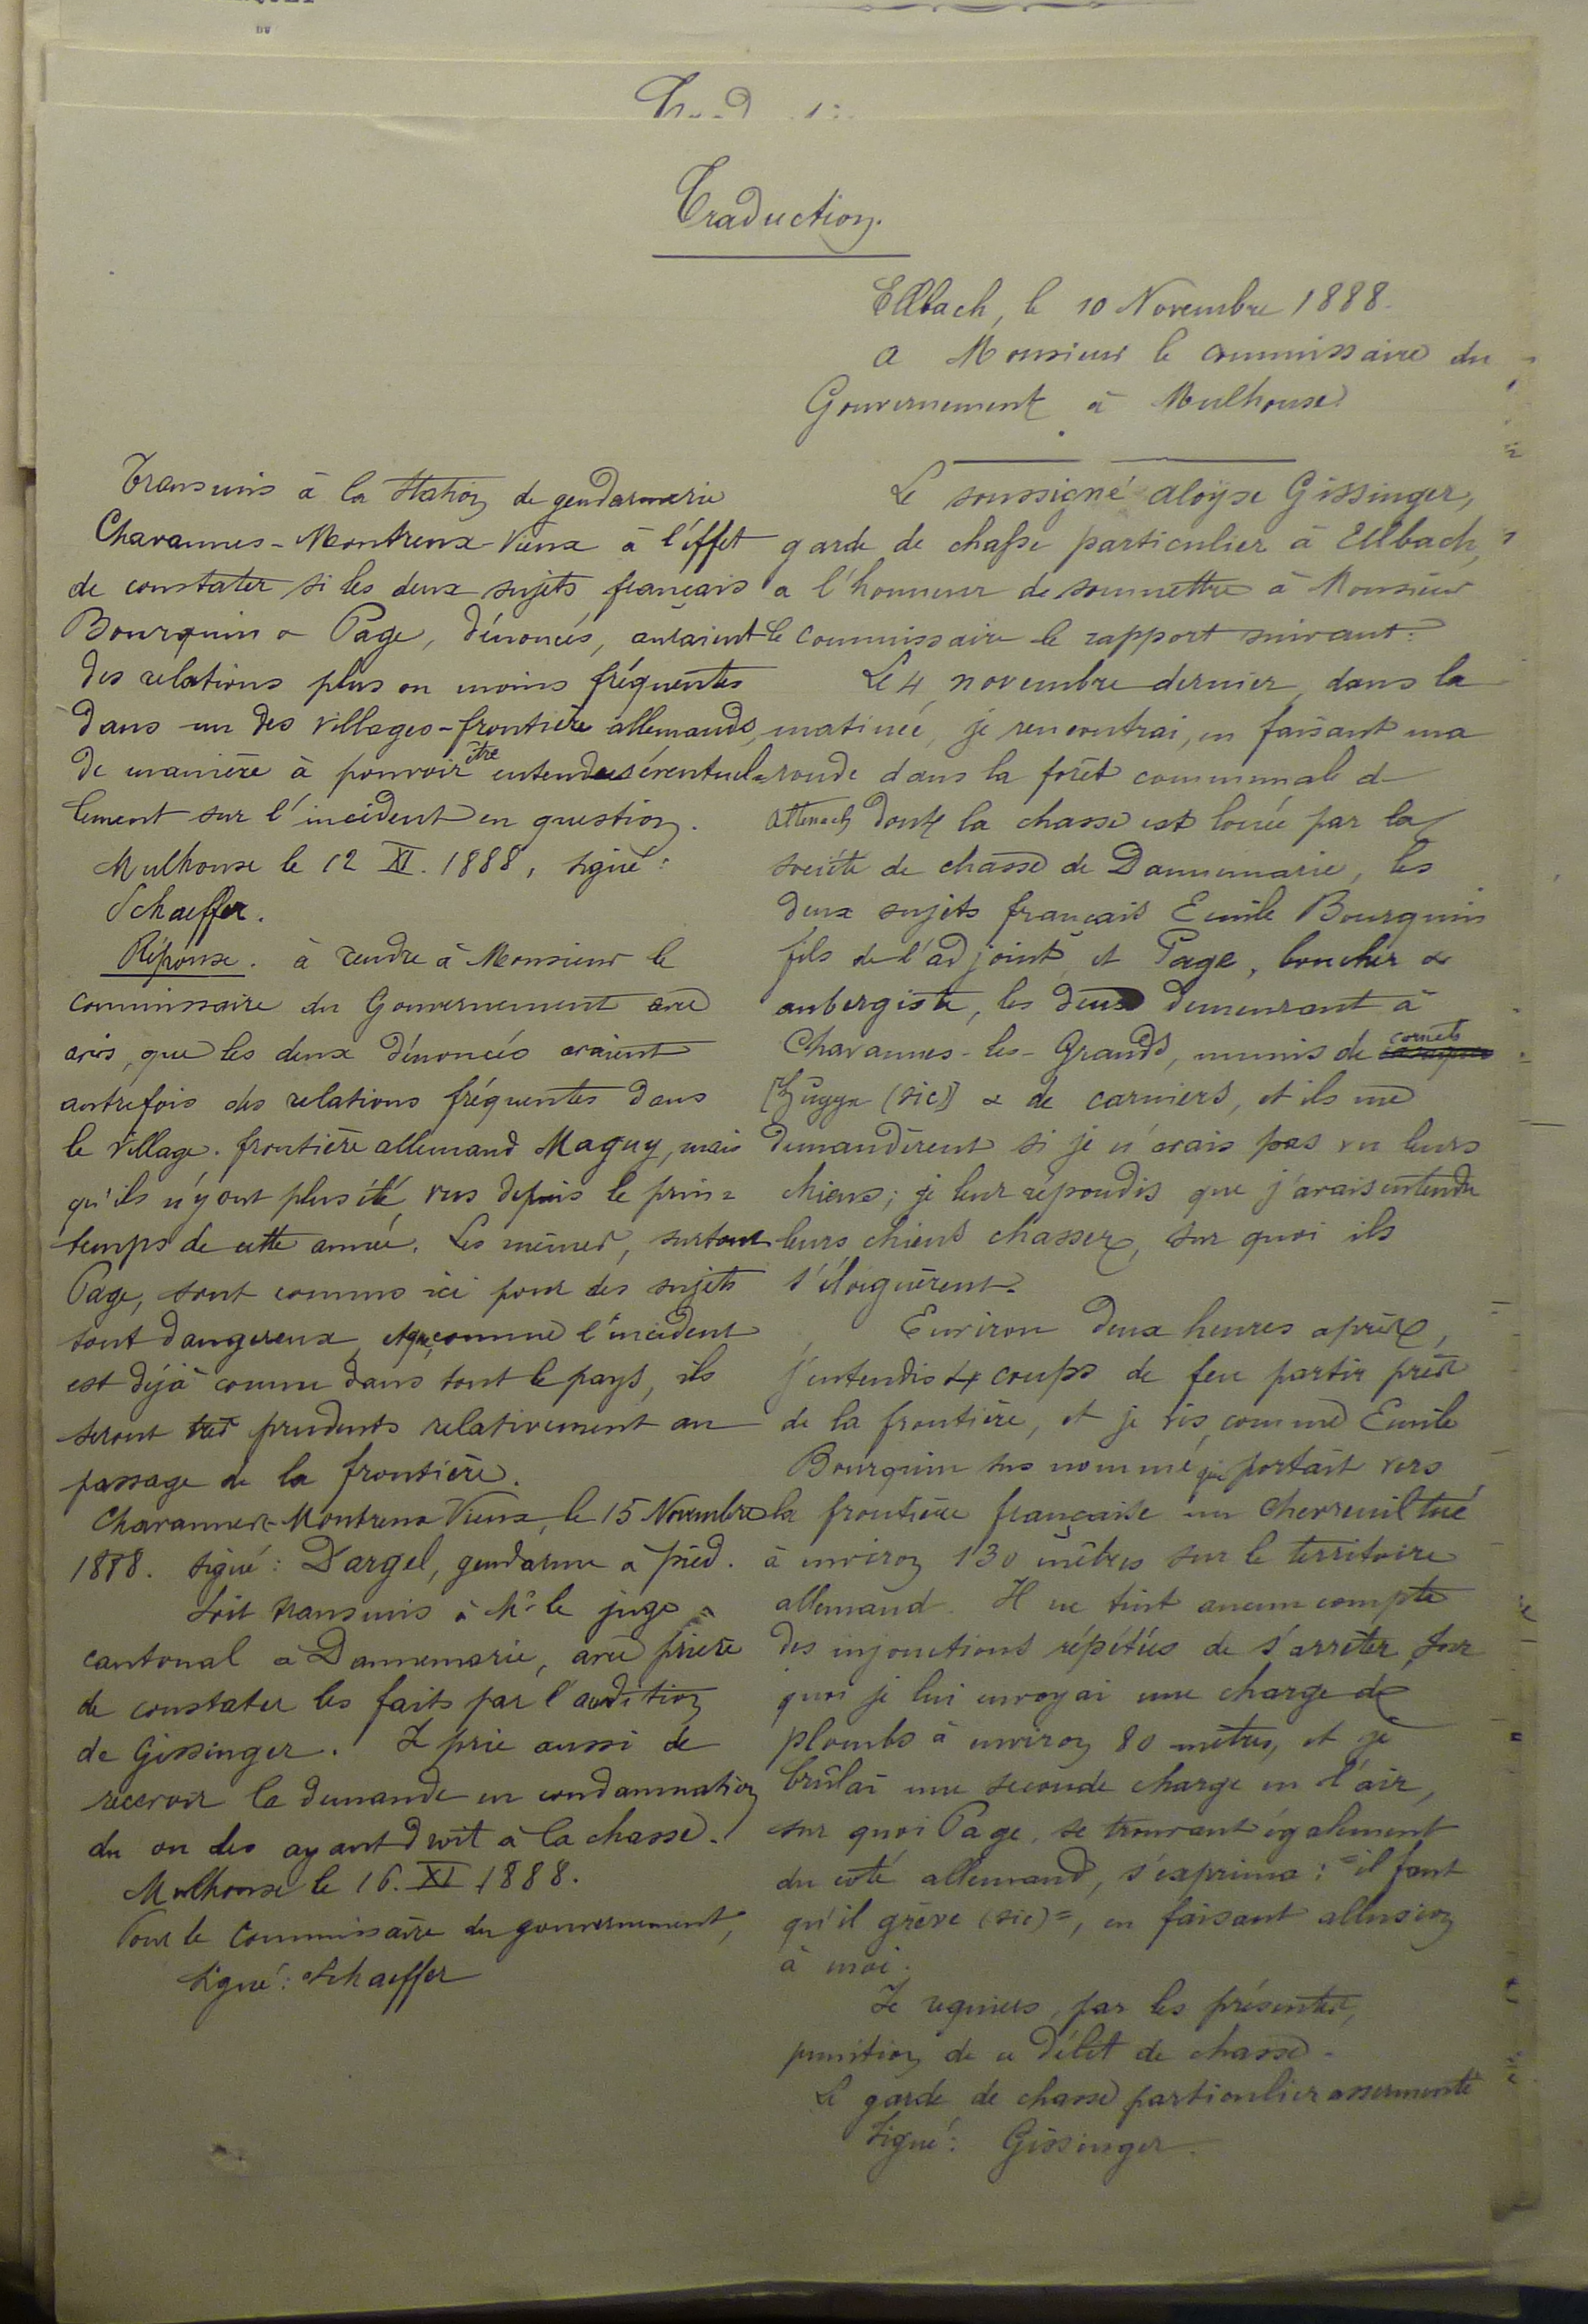 DU
Traduction.
Ellbach, le 10 Novembre 1888.
a Monsieur le commissaire du
Gouvernement à Mulhouse
Le soussigné aloÿse Gissinger,
garde de chasse particulier à Ellbach,
a l'honneur de soumettre à Monsieur
le commissaire le rapport suivant:
Le 4 novembre dernier, dans la
matinée, je rencontrai, en faisant ma
ronde dans la forêt communale d
dont la chasse est louée par la
société de chasse de Dannemarie, les
deux sujets français Emile Bourquin
fils de l'adjoint, et Page, boucher &
aubergiste, les deux demeurant à
Chavannes-les-Grands, munis de cornets
(sic)] & de carniers, et ils me
demandèrent si je n'avais pas vu leurs
chiens; je leur répondis que j'avais entendu
leurs chiens chasser, sur quoi ils
s'éloignèrent.
Environ deux heures après,
j'entendis 4 coups de feu partir près
de la frontière, et je vis comme Emile
Bourquin sus nommé qui portait vers
la frontière française un chevreuil tué
à environ 130 mètres sur le territoire
allemand. Il ne tint aucun compte
des injonctions répétées de s'arrêter, sur
quoi je lui envoyai une charge de
plombs à environ 80 mètres, et je
brûlai une seconde charge en l'air,
sur quoi Page, se trouvant également
du coté allemand, s'exprima: "il faut
qu'il grève (sic)", en faisant allusion
à moi.
Je requiers, par les présentes,
punition de ce délit de chasse.
Le garde de chasse particulier assermenté
signé: Gissinger.
Transmis à la station de gendarmerie
Chavannes-Montreux-Vieux à l'éffet
de constater si les deux sujets français
Bourquin & Page, dénoncés, auraient
des relations plus ou moins fréquentes
dans un des villages-frontière allemands,
de manière à pouvoir être entendus éventuel=
lement sur l'incident en question.
Mulhouse le 12 XI. 1888, signé:
Schaeffer.
Réponse. à rendre à Monsieur le
commissaire du Gouvernement avec
avis, que les deux dénoncés avaient
autrefois des relations fréquentes dans
le village-frontière allemand Magny, mais
qu'ils n'y ont plus été vus depuis le prin=
temps de cette année. Les mêmes, surtout
Page, sont connus ici pour des sujets
tout dangereux, et que, comme l'incident
est déjà connu dans tout le pays, ils
seront très prudents relativement au
passage de la frontière.
Chavannes-Montreux Vieux, le 15 Novembre
1888. signé: Dargel, gendarme à pied.
Soit transmis à Mr le juge
cantonal à Dannemarie, avec prière
de constater les faits par l'audition
de Gissinger. Je prie aussi de
recevoir la demande en condamnation
du ou des ayant droit à la chasse.
Mulhouse le 16. XI 1888.
Pour le Commissaire du gouvernement,
signé: Schaeffer